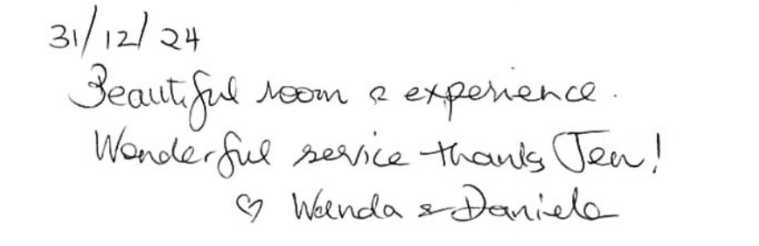 31/12/24
Beautiful room & experience.
Wonderful service thanks Jen!
♡ Wanda & Daniela